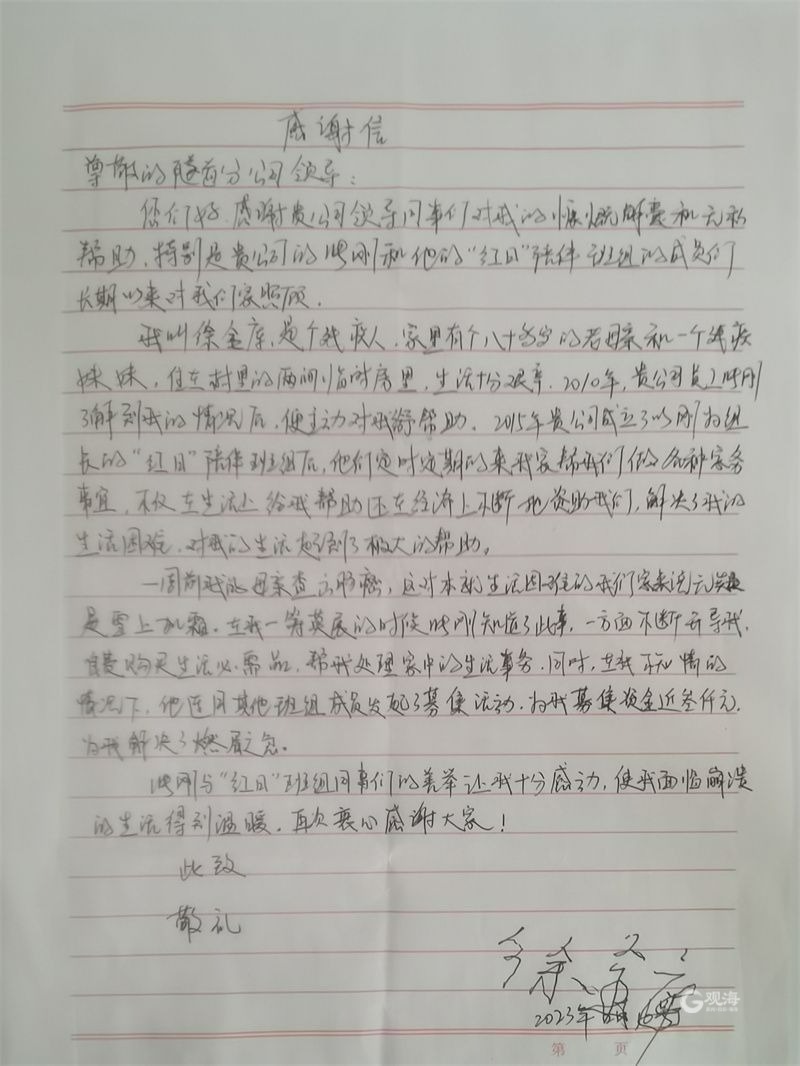 感谢信
尊敬的隧道分公司领导：
您们好，感谢贵公司领导同事们对我的慷慨解囊和无私
帮助，特别是贵公司的 刚和他的“红日”陪伴班组的成员们
长期以来对我们家照顾。
我叫徐金库，是个残疾人，家里有个八十多岁的老母亲和一个残疾
妹妹，住在村里的两间临时房里，生活十分艰辛。2010年，贵公司员工 刚
了解到我的情况后，便主动对我 帮助。2015年贵公司成立了以 刚为组
长的“红日”陪伴班组后，他们定时定期的来我家帮我们做各种家务
事宜，不仅在生活上给我帮助还在经济上不断地资助我们，解决了我的
生活困难，对我的生活起到了极大的帮助。
一周前我的母亲查出肠癌，这对本就生活困难的我们家来说无疑
是雪上加霜。在我一筹莫展的时候 刚知道了此事，一方面不断开导我，
自费购买生活必需品，帮我处理家中的生活事务，同时，在我不知情的
情况下，他连同其他班组成员发起了募集活动，为我募集资金近叁仟元，
为我解决了燃眉之急。
刚与“红日”班组同事们的善举让我十分感动，使我面临崩溃
的生活得到温暖。再次衷心感谢大家！
此致
敬礼
徐金库
2023年
第 页
观海